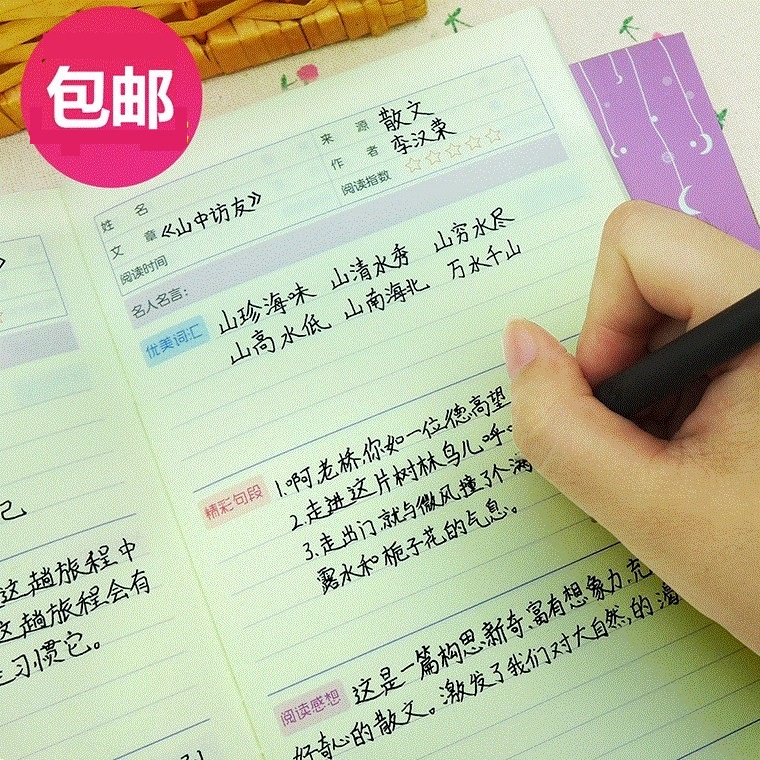 包邮
姓 名
来 源 散文
文 章 《山中访友》
作 者 李汉荣
阅读时间
阅读指数
名人名言:
优美词汇 山珍海味 山清水秀 山穷水尽
山高水低 山南海北 万水千山
精彩句段 1.啊老桥,你如一位德高望
2.走进这片树林,鸟儿呼
3.走出门,就与微风撞了个满
露水和栀子花的气息。
阅读感想 这是一篇构思新奇,富有想象力,充
好奇心的散文。激发了我们对大自然的
己
这趟旅程中
这趟旅程会有
习惯它。